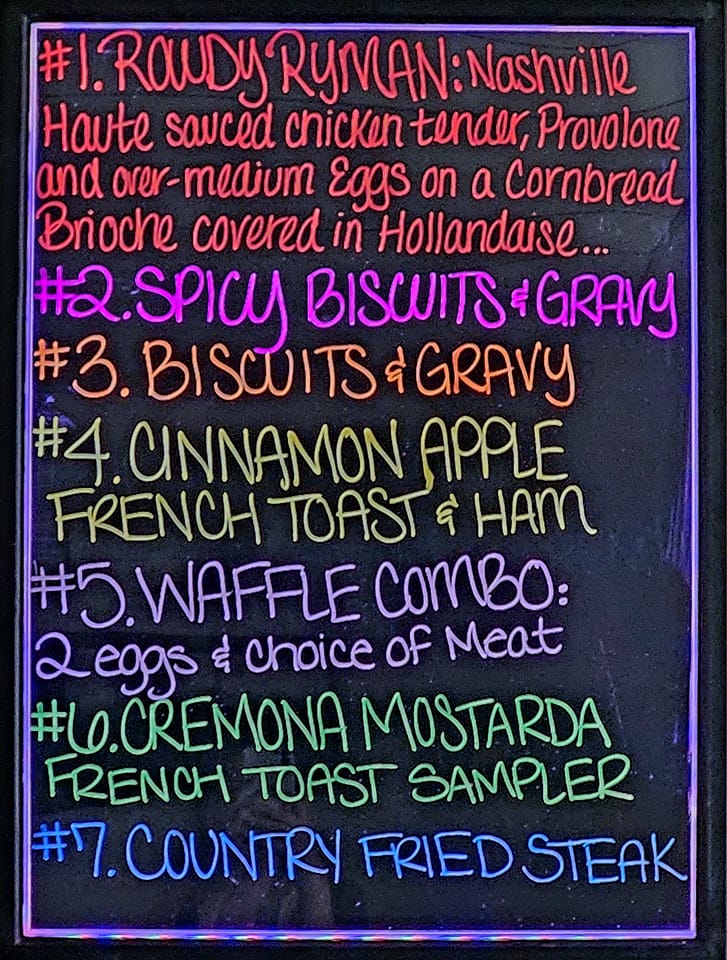 #1. ROWDY RYMAN: Nashville
Haute sauced chicken tender, Provolone
and over-medium Eggs on a Cornbread
Brioche covered in Hollandaise...
#2. SPICY BISCUITS & GRAVY
#3. BISCUITS & GRAVY
#4. CINNAMON APPLE
FRENCH TOAST & HAM
#5. WAFFLE COMBO:
2 eggs & choice of Meat
#6. CREMONA MOSTARDA
FRENCH TOAST SAMPLER
#7. COUNTRY FRIED STEAK